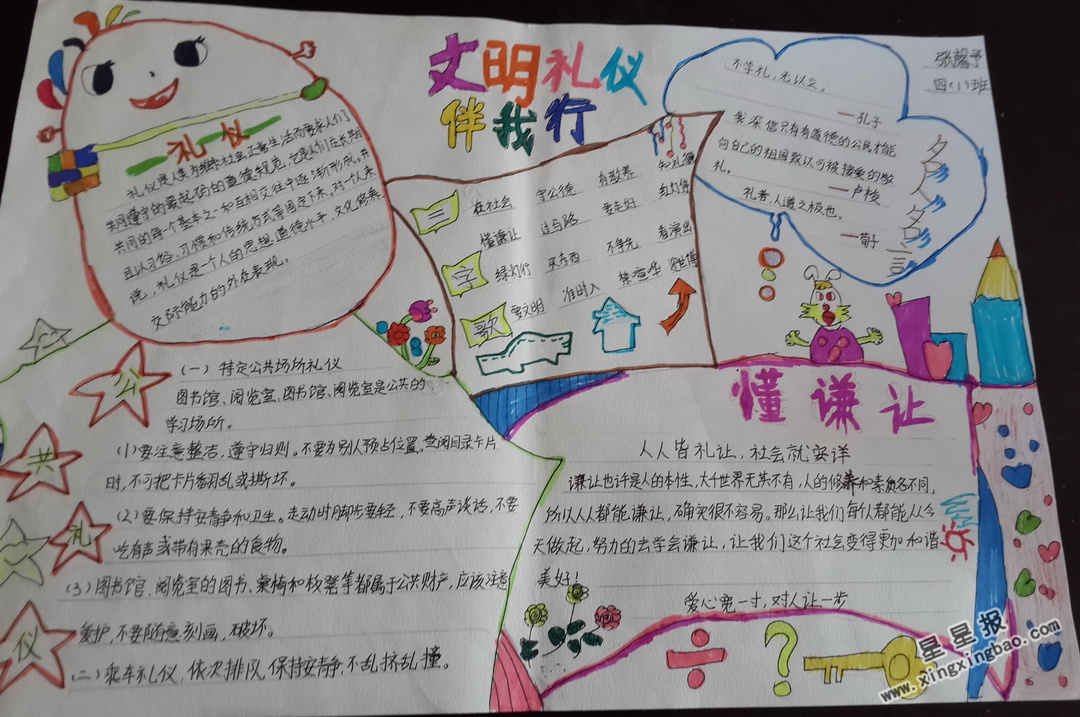 文明礼仪
伴我行
张馨予
四(1)班
礼仪
礼仪是人类为维系社会正常生活而要求人们
共同遵守的最起码的道德规范,它是人们在长期
共同的每个基本之一和互相交往中逐渐形成,并
且以习俗、习惯和传统方式等固定下来。对一个人来
说,礼仪是一个人的思想道德水平、文化修养、
交际能力的外在表现。
三
字
歌
在社会 守公德 有教养 知礼仪
懂谦让 过马路 要走好 红灯停
绿灯行 买东西 不争先 看演出
准时入 禁喧哗
要文明
不学礼,无以立。
——孔子
我深信只有有道德的公民才能
向自己的祖国致以可被接受的敬
礼。
——卢梭
礼者,人道之极也。
——荀子
名人名言
公
共
礼
仪
(一)特定公共场所礼仪
图书馆、阅览室、图书馆、阅览室是公共的
学习场所。
(1)要注意整洁,遵守归则。不要为别人预占位置。查阅目录卡片
时,不可把卡片翻乱或撕坏。
(2)要保持安静和卫生。走动时脚步要轻,不要高声谈话,不要
吃有声或带有果壳的食物。
(3)图书馆、阅览室的图书、桌椅和板凳等都属于公共财产,应该注意
爱护,不要随意刻画,破坏。
(二)乘车礼仪,依次排队,保持安静,不乱挤乱撞。
懂谦让
人人皆礼让,社会就安详
谦让也许是人的本性,大千世界无奇不有,人的修养和素质各不同,
所以人人都能谦让,确实很不容易。那么让我们每个人都能从今
天做起,努力的去学会谦让,让我们这个社会变得更加和谐
美好!
爱心宽一寸,对人让一步
星星报
www.xingxingbao.com